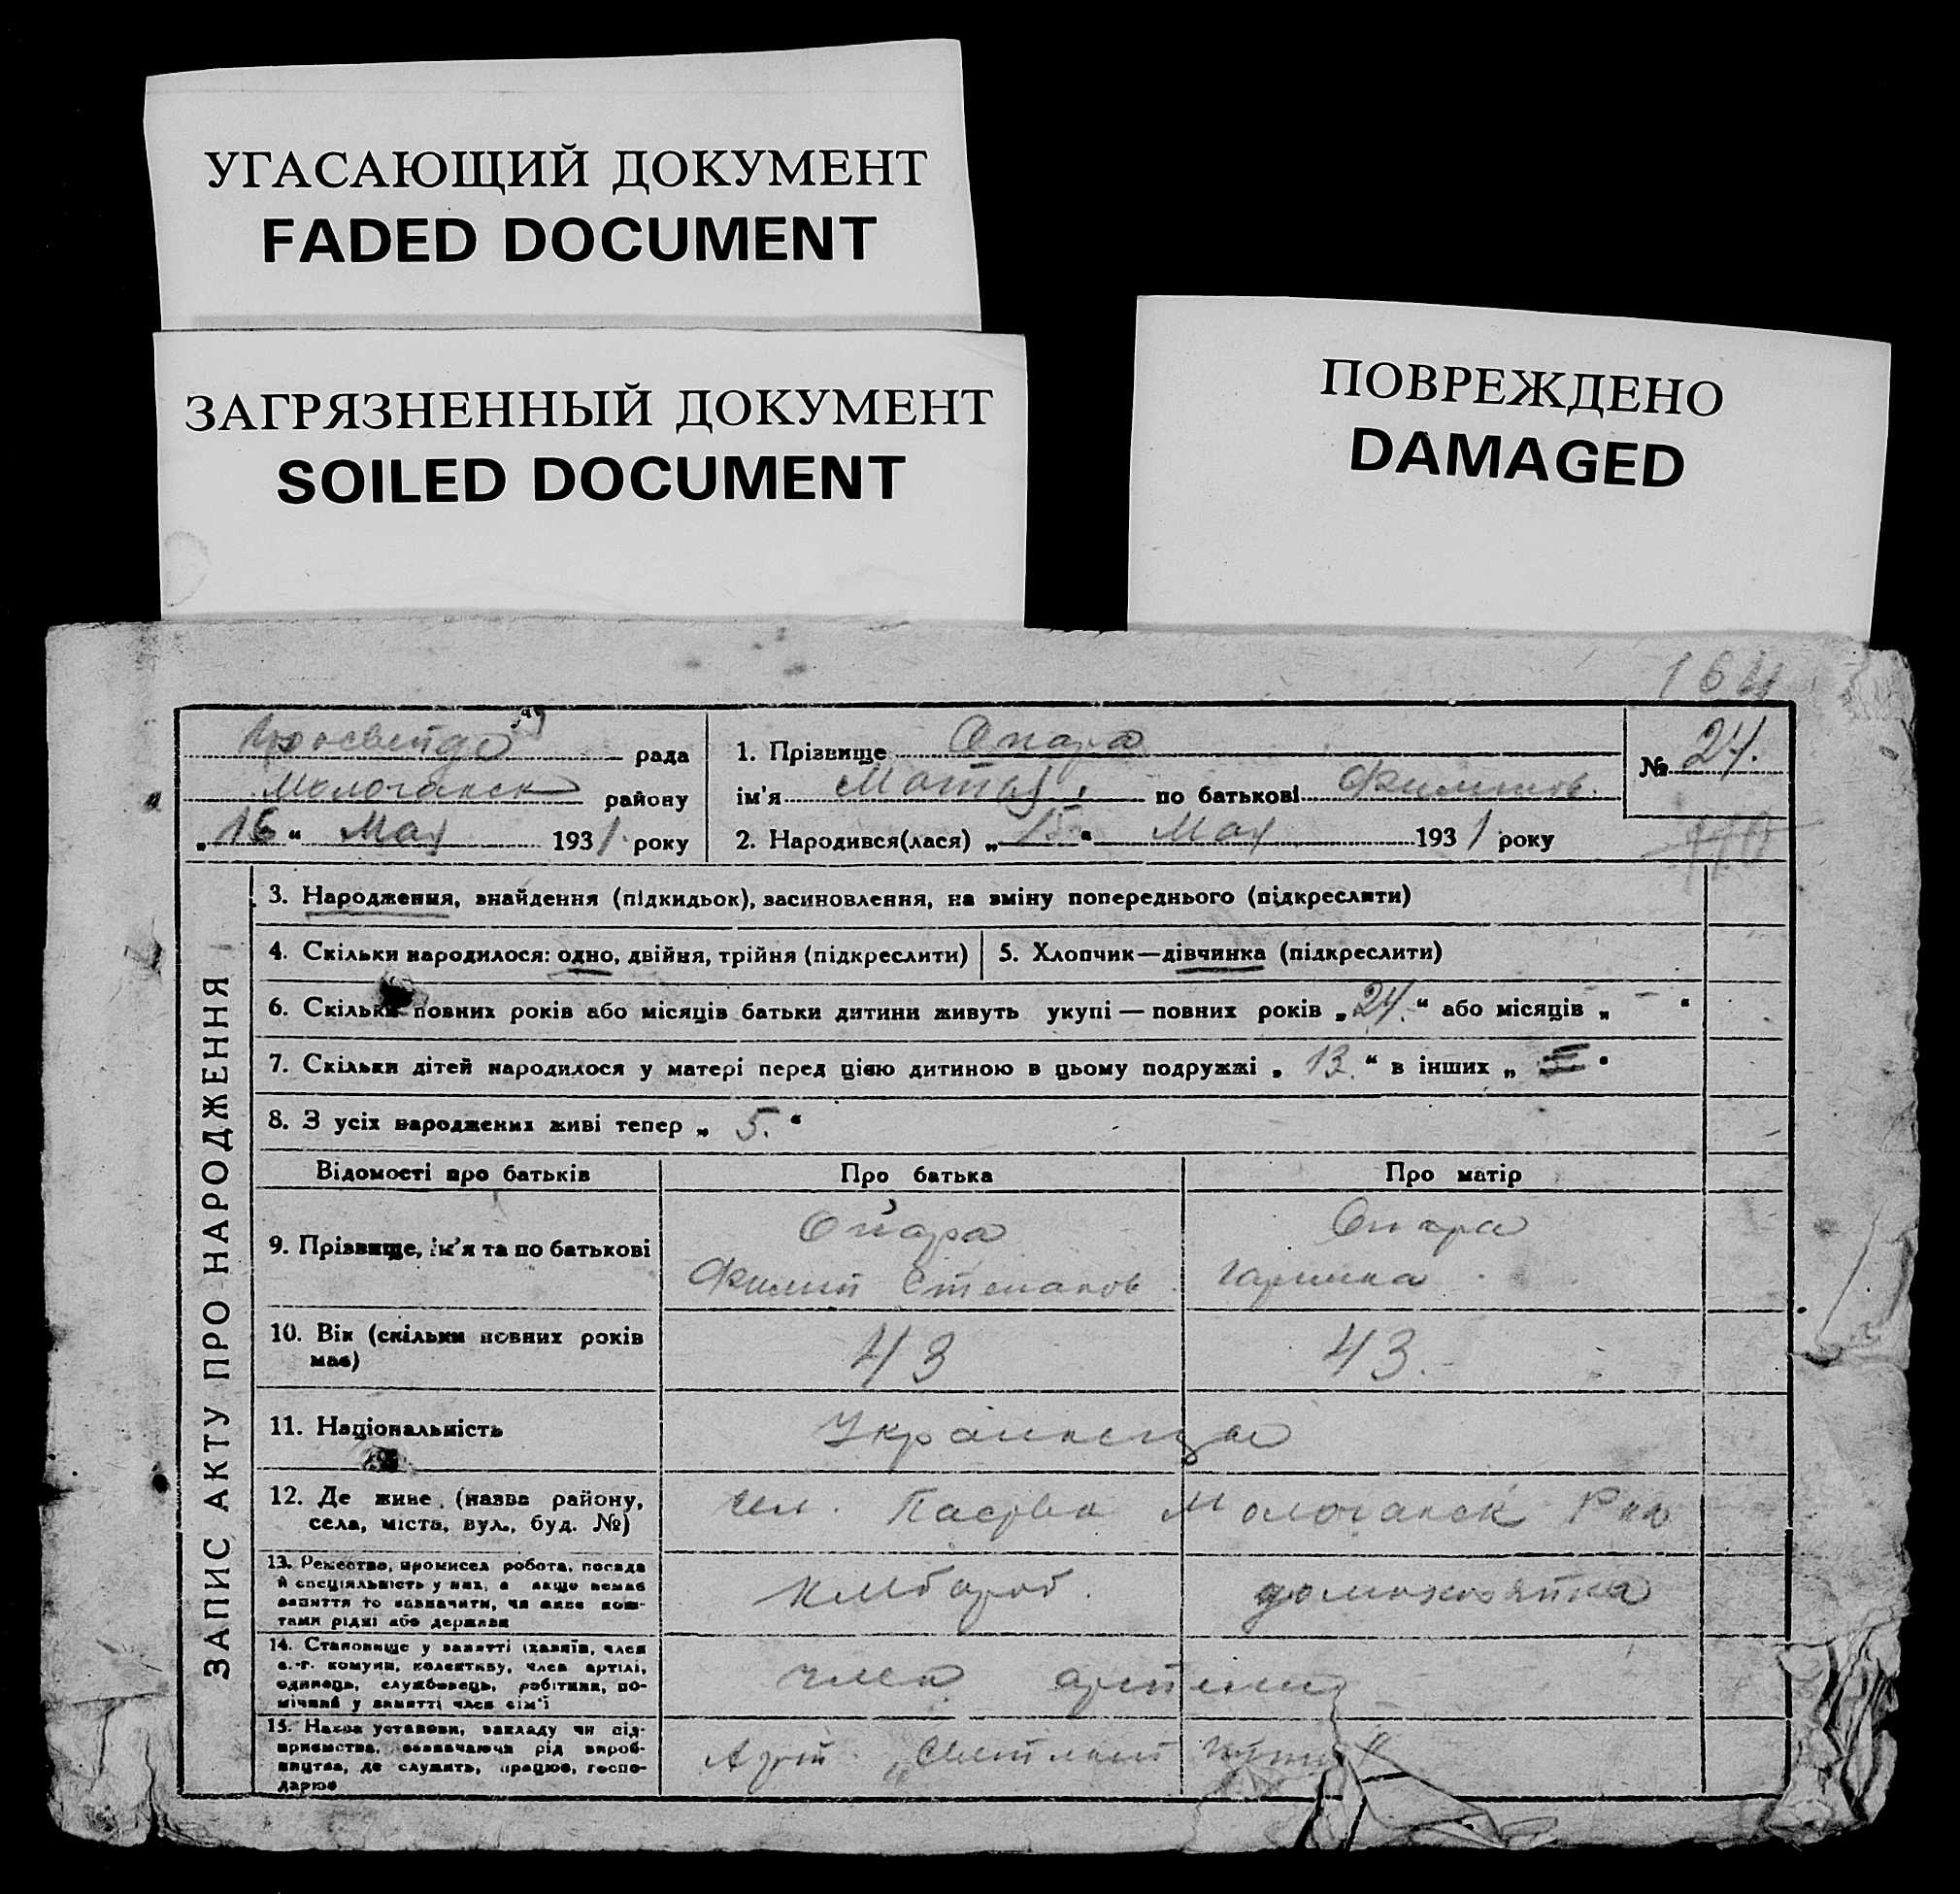 УГАСАЮЩИЙ ДОКУМЕНТ
FADED DOCUMENT
ЗАГРЯЗНЕННЫЙ ДОКУМЕНТ
SOILED DOCUMENT
ПОВРЕЖДЕНО
DAMAGED
164
рада
Молочанск району
„16“ Мая 1931 року
1. Прізвище Опара
ім'я по батькові
2. Народився(лася) „15“ Мая 1931 року
№ 24.
ЗАПИС АКТУ ПРО НАРОДЖЕННЯ
3. Народження, знайдення (підкидьок), засиновлення, на зміну попереднього (підкреслити)
4. Скільки народилося: одно, двійня, трійня (підкреслити)
5. Хлопчик—дівчинка (підкреслити)
6. Скільки повних років або місяців батьки дитини живуть укупі — повних років „24.“ або місяців „ - “
7. Скільки дітей народилося у матері перед цією дитиною в цьому подружжі „13.“ в інших „ “
8. З усіх народжених живі тепер „5.“
Відомості про батьків Про батька Про матір
9. Прізвище, ім'я та по батькові
Опара
Филип Степанов
Опара
10. Вік (скільки повних років
має)
43
43.
11. Національність
Украинцы
12. Де живе (назва району,
села, міста, вул., буд. №)
Молочанск
13. Ремество, промисел робота, посада
й спеціяльність у них, а якщо немає
заняття то зазначити, чи живе кош-
тами рідні або держави
домохозяйка
14. Становище у занятті (хазяїн, член
с.-г. комуни, колективу, член артілі,
одинець, службовець, робітник, по-
мічний у занятті член сім'ї
член артели
15. Назва установи, закладу чи під-
приємства, зазначаючи рід вироб-
ництва, де служить, працює, госпо-
дарює